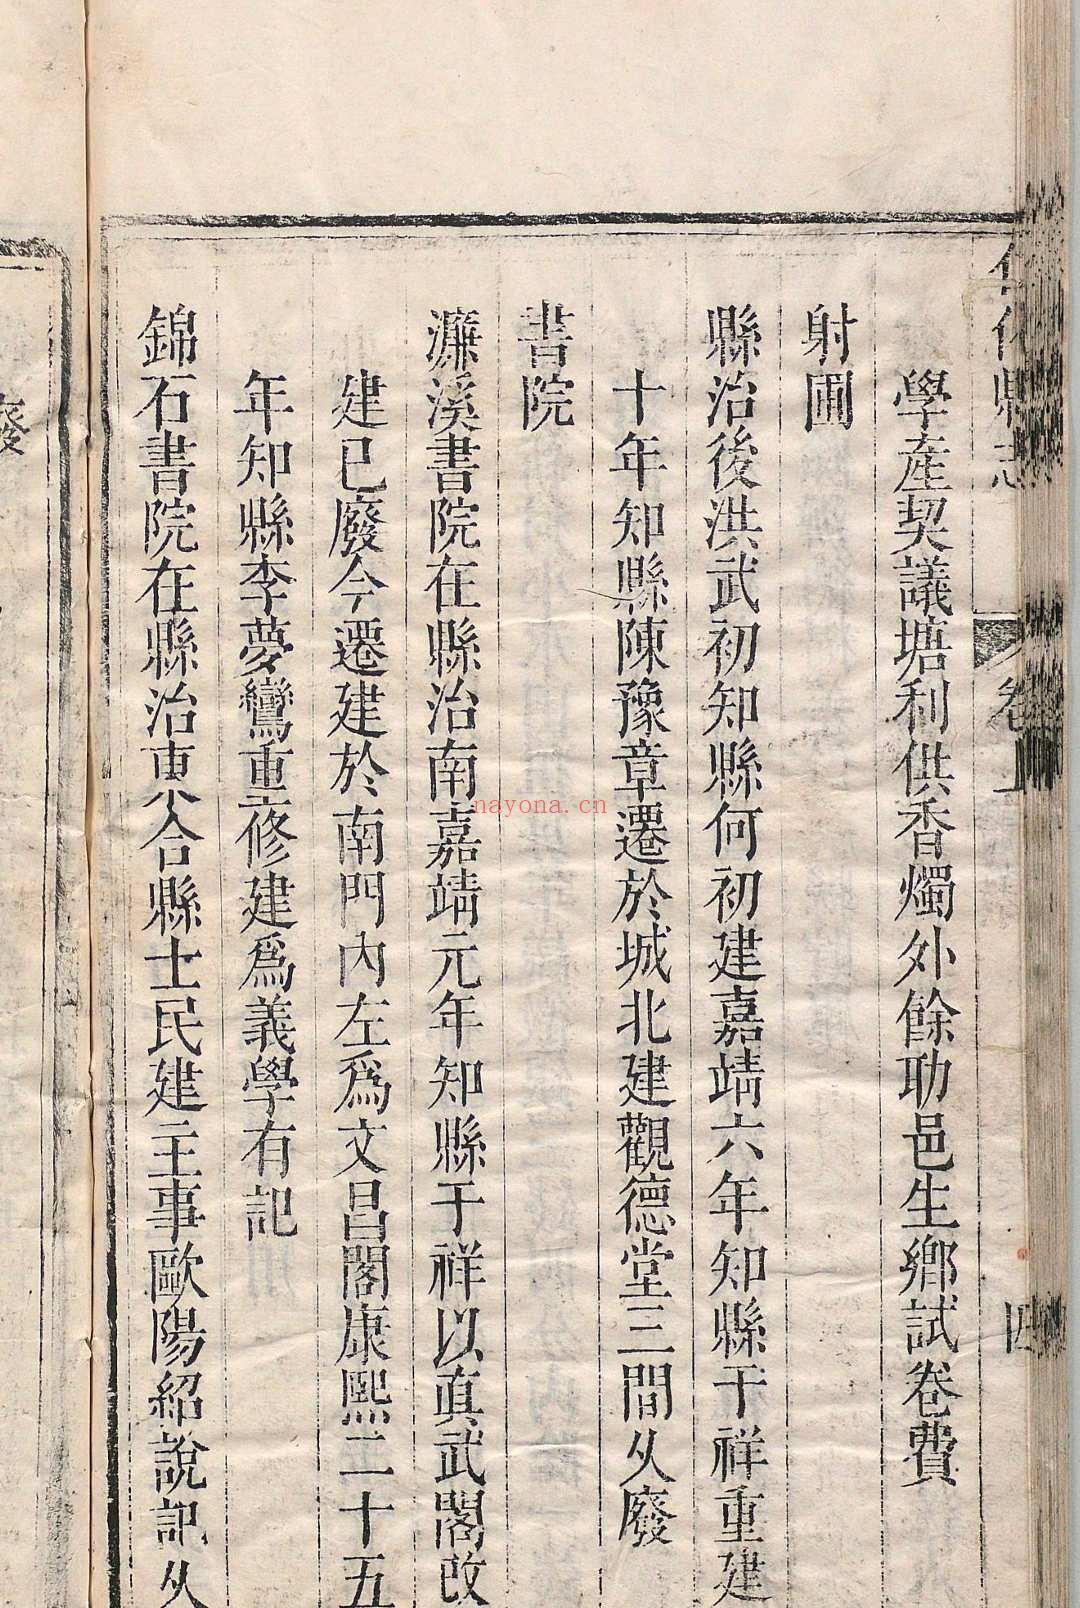 仁化縣志
四
學產契議塘利供香燭外餘助邑生鄉試卷費
射圃
縣治後洪武初知縣何初建嘉靖六年知縣于祥重建
十年知縣陳豫章遷於城北建觀德堂三間乆廢
書院
濂溪書院在縣治南嘉靖元年知縣于祥以真武閣改
建已廢今遷建於南門內左爲文昌閣康熙二十五
年知縣李夢鸞重修建爲義學有記
錦石書院在縣治東合縣士民建主事歐陽紹說記乆
廢
nayona.cn